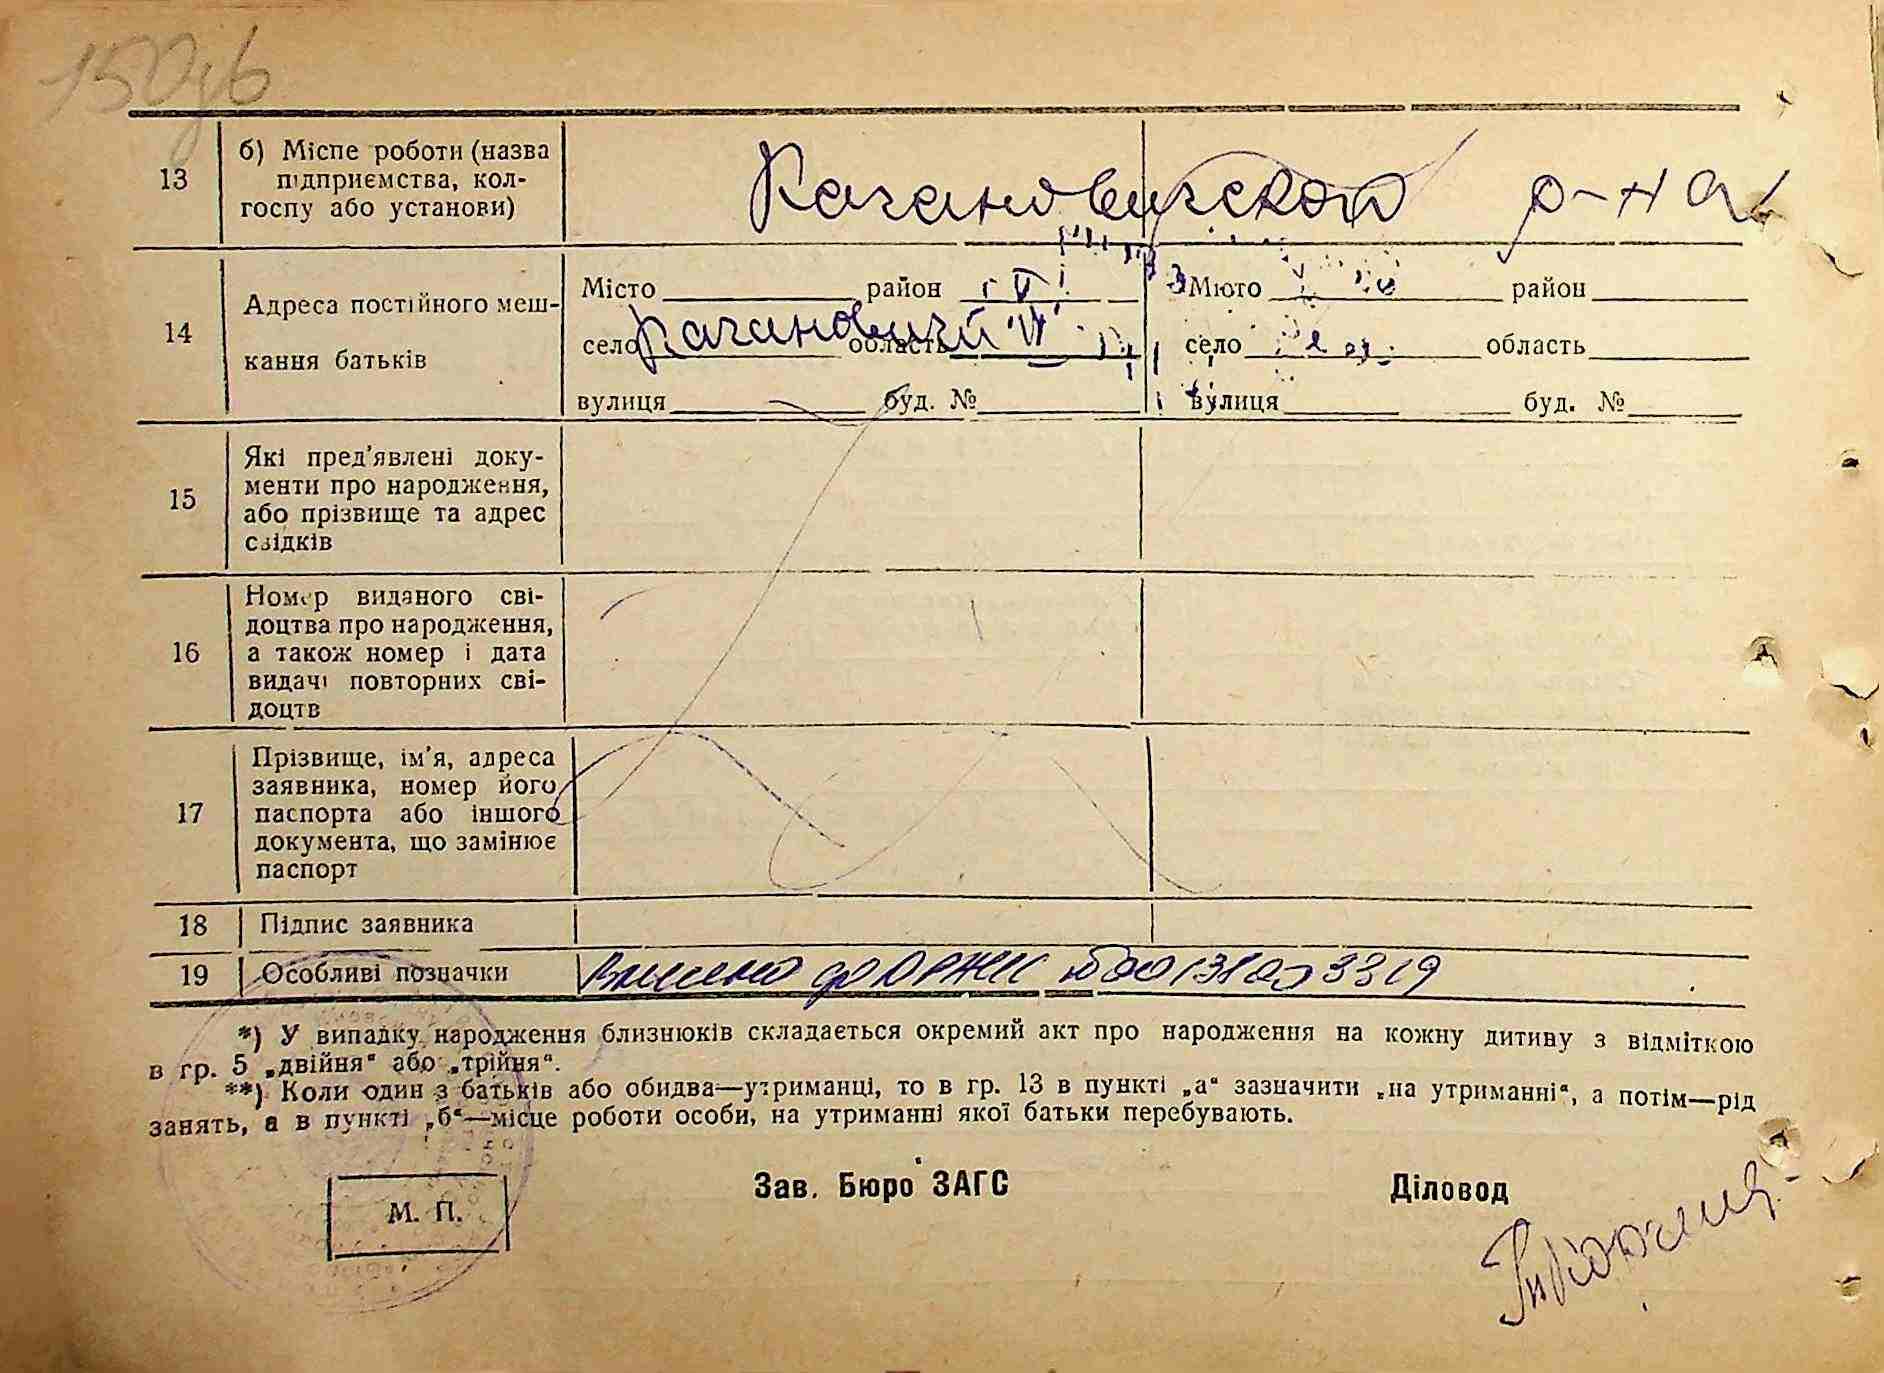 13
б) Місце роботи (назва
підприємства, кол-
госпу або установи)
Кагановичской р-на
14
Адреса постійного меш-
кання батьків
Місто район
село Каганович область
вулиця буд. №
Місто район
село область
вулиця буд. №
15
Які пред'явлені доку-
менти про народження,
або прізвище та адрес
свідків
16
Номер виданого сві-
доцтва про народження,
а також номер і дата
видачі повторних сві-
доцтв
17
Прізвище, ім'я, адреса
заявника, номер його
паспорта або іншого
документа, що замінює
паспорт
18
Підпис заявника
19
Особливі позначки
до ДРАЦС
*) У випадку народження близнюків складається окремий акт про народження на кожну дитину з відміткою
в гр. 5 „двійня“ або „трійня“.
**) Коли один з батьків або обидва—утриманці, то в гр. 13 в пункті „а“ зазначити „на утриманні“, а потім—рід
занять, а в пункті „б“—місце роботи особи, на утриманні якої батьки перебувають.
М. П.
Зав. Бюро ЗАГС
Діловод